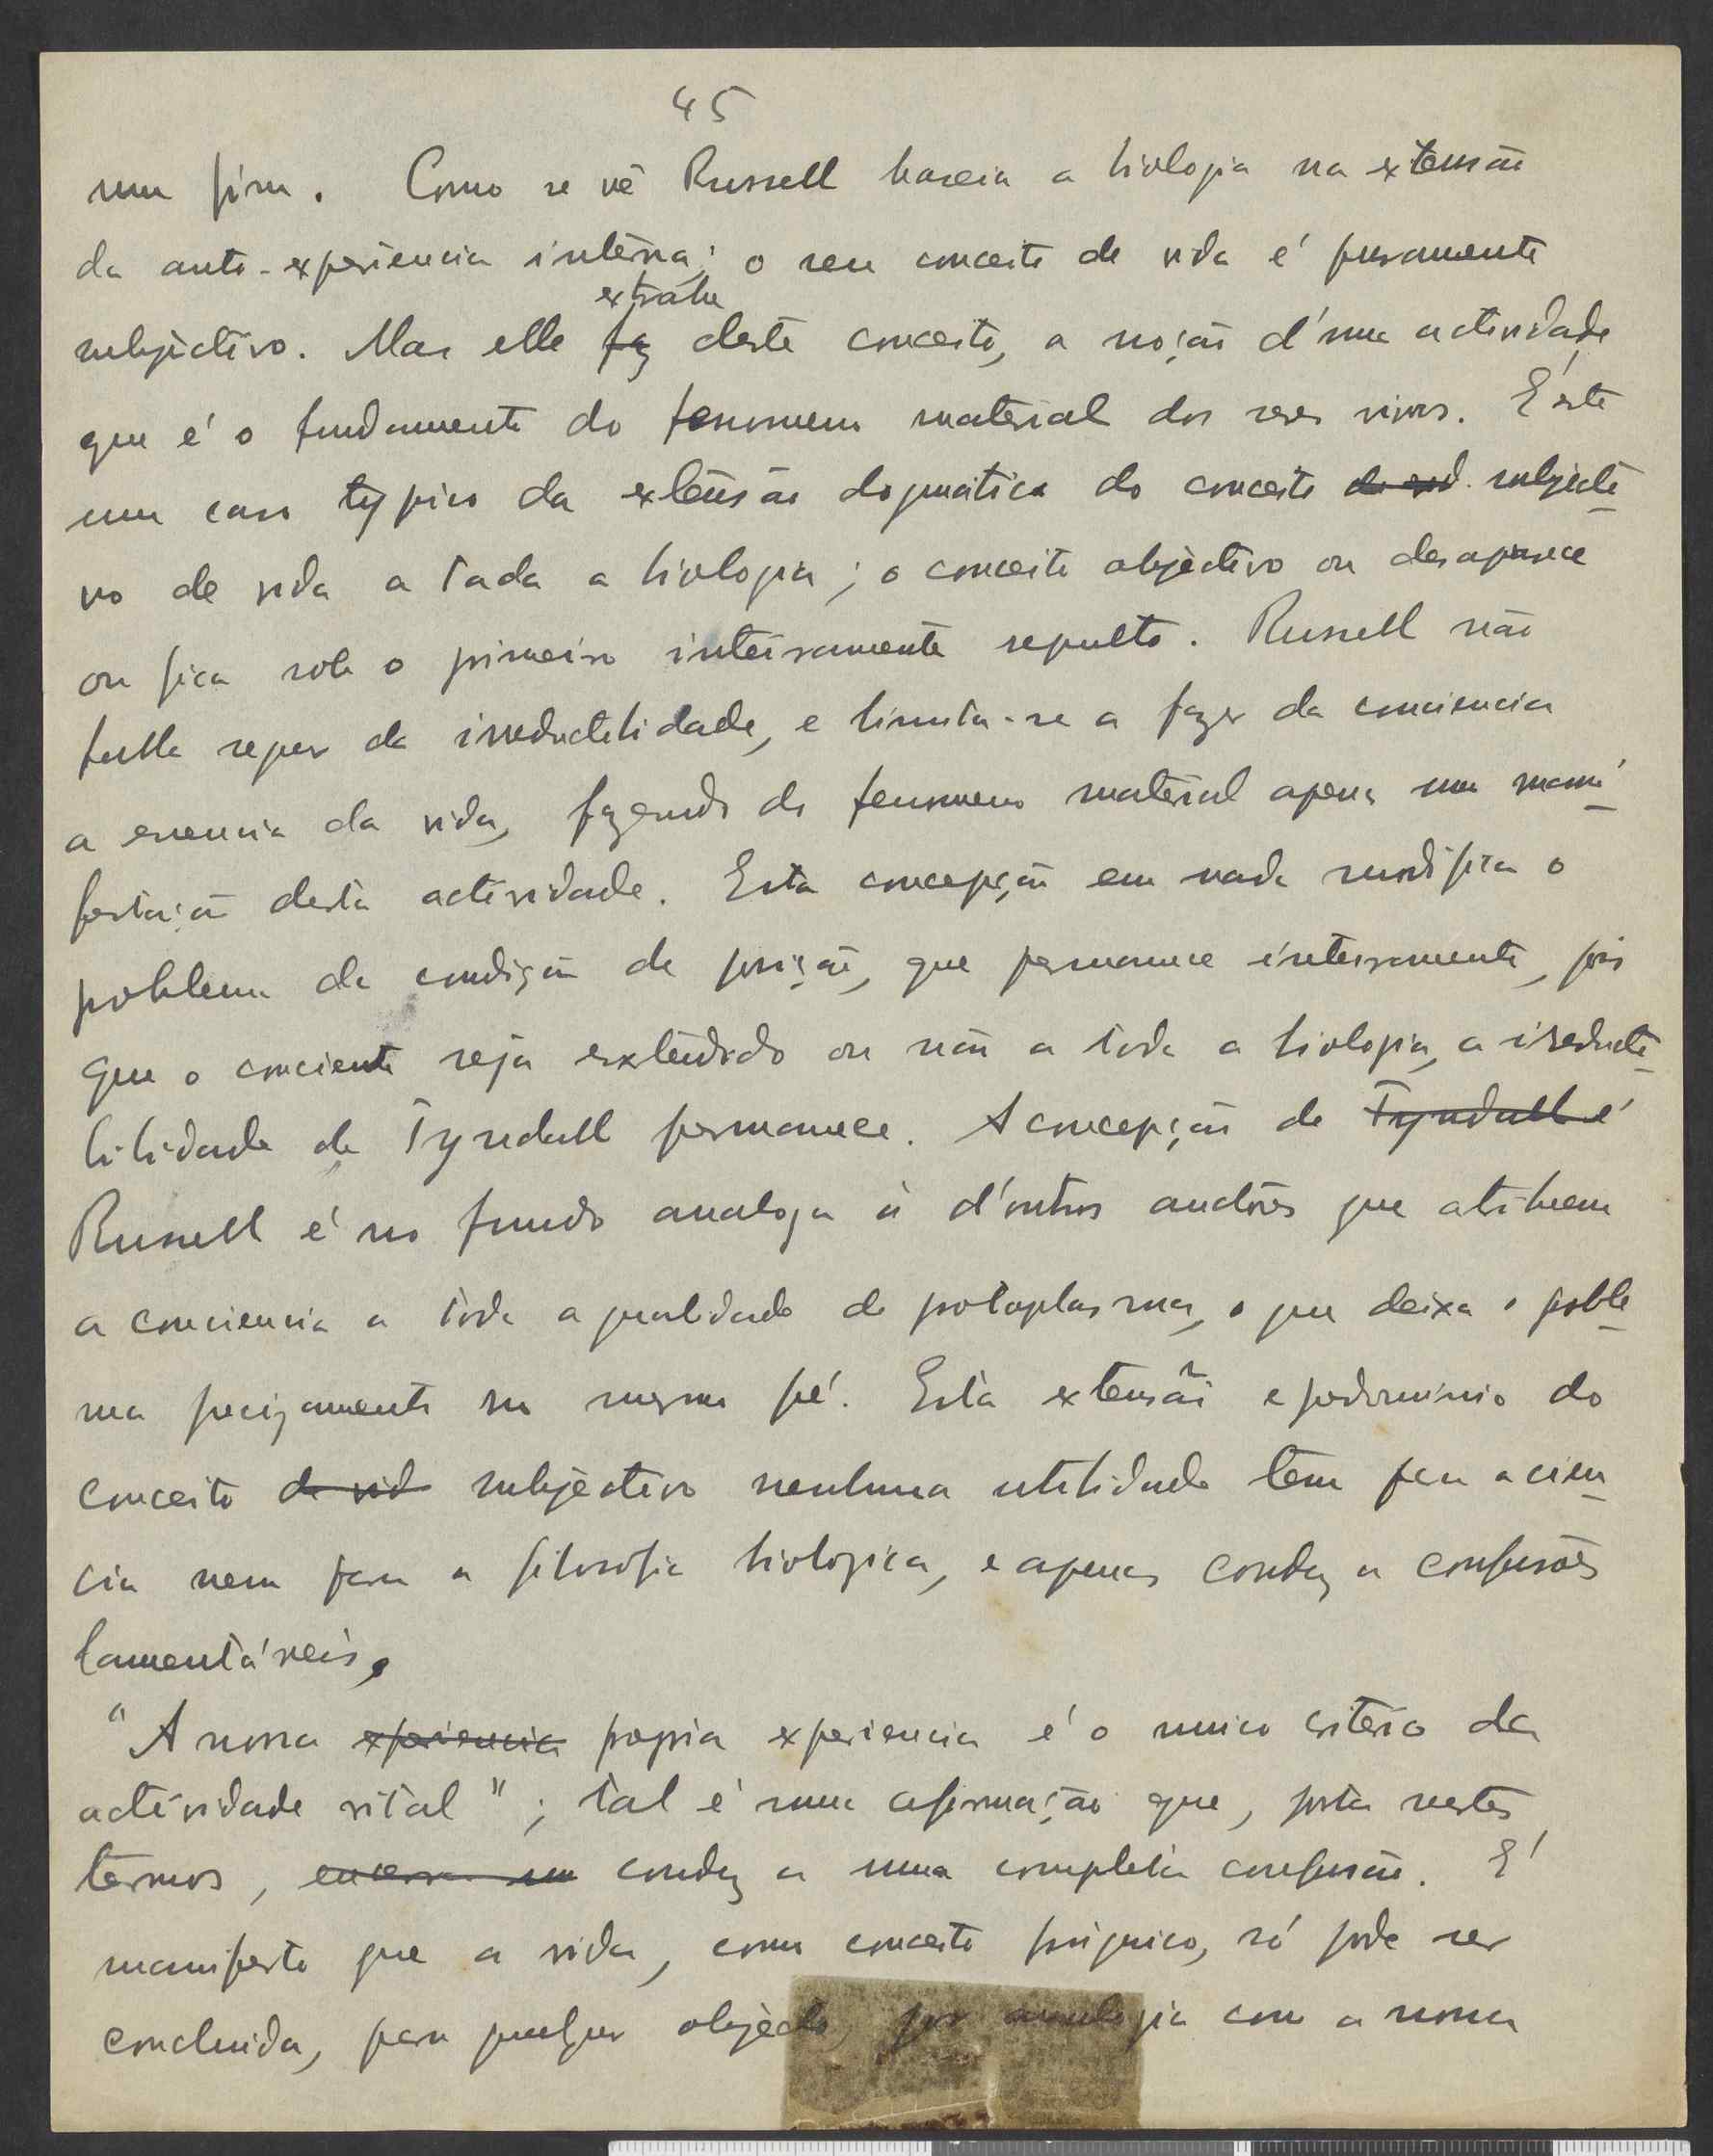 45
um fim. Como se vê Russell baseia a biologia na extensão
da auto-experiencia interna; o seu conceito de vida é puramente
extrahe
subjectivo. Mas elle faz deste conceito, a noção d'uma actividade
que é o fundamento do fenomeno material dos seres vivos. É este
um caso typico da extensão dogmatica do conceito de vid. subjecti-
vo de vida a toda a biologia; o conceito objectivo ou desaparece
ou fica sob o primeiro inteiramente sepulto. Russell não
falla sequer da irreductibilidade, e limita-se a fazer da conciencia
a essencia da vida, fazendo do fenomeno material apenas uma mani-
festação desta actividade. Esta concepção em nada modifica o
problema da condição de posição, que permanece inteiramente, pois
que o conciente seja extendido ou não a toda a biologia, a irreducti-
bilidade de Tyndall permanece. A concepção de Tyndall é
Russell é no fundo analoga á d'outros auctores que atribuem
a conciencia a toda a qualidade de protoplasma, o que deixa o proble-
ma precizamente no mesmo pé. Esta extensão e predominio do
conceito de vid subjectivo nenhuma utilidade tem para a cien-
cia nem para a filosofia biologica, e apenas conduz a confusões
lamentáveis.
"A nossa experiencia propria experiencia é o unico criterio da
actividade vital"; tal é uma afirmação que, posta nestes
termos, encerra um conduz a uma completa confusão. É
manifesto que a vida, como conceito psiquico, só pode ser
concluida, para qualquer objecto, por analogia com a nossa